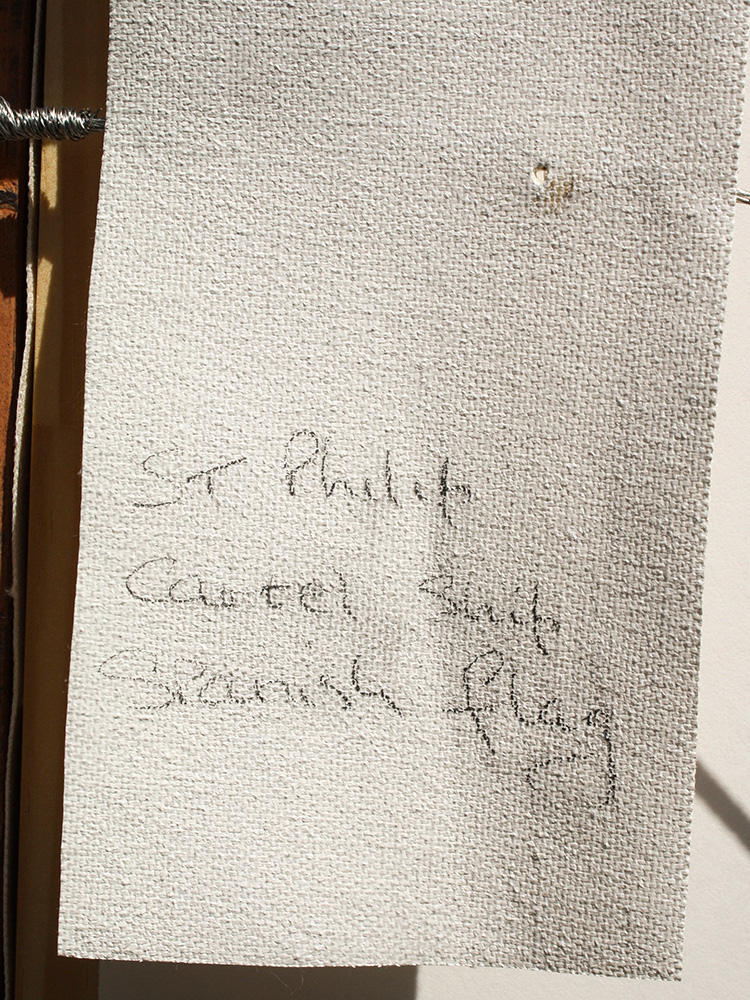 ST Philip
Cartel Ship
Spanish flag